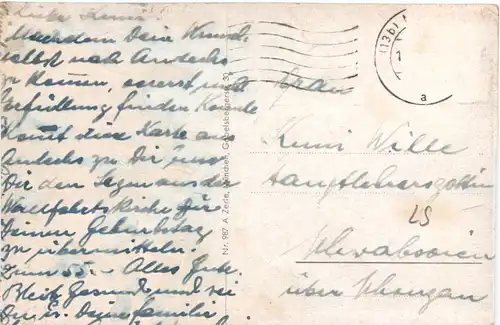 Liebe Kuni!
Nachdem Dein Wunsch
selbst nach Andechs
zu kommen,
Erfüllung finden konnte
kommt diese Karte aus
Andechs zu Dir um
Dir den Segen aus der
Wallfahrtskirche für
Deinen Geburtstag
zu übermitteln.
Zum 55. - Alles Gute.
Bleib gesund und sei
Du u. Deine Familie
Nr. 987 A Zerle, München, Gabelsbergerstr. 30
(13b)
a
Kuni Wille
Hauptlehrersgattin
LS
Schwabsoien
über Schongau